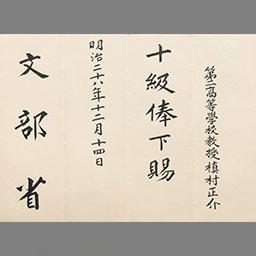 第二高等學校教授槙村正介
十級俸下賜
明治二十六年十二月十四日
文部省